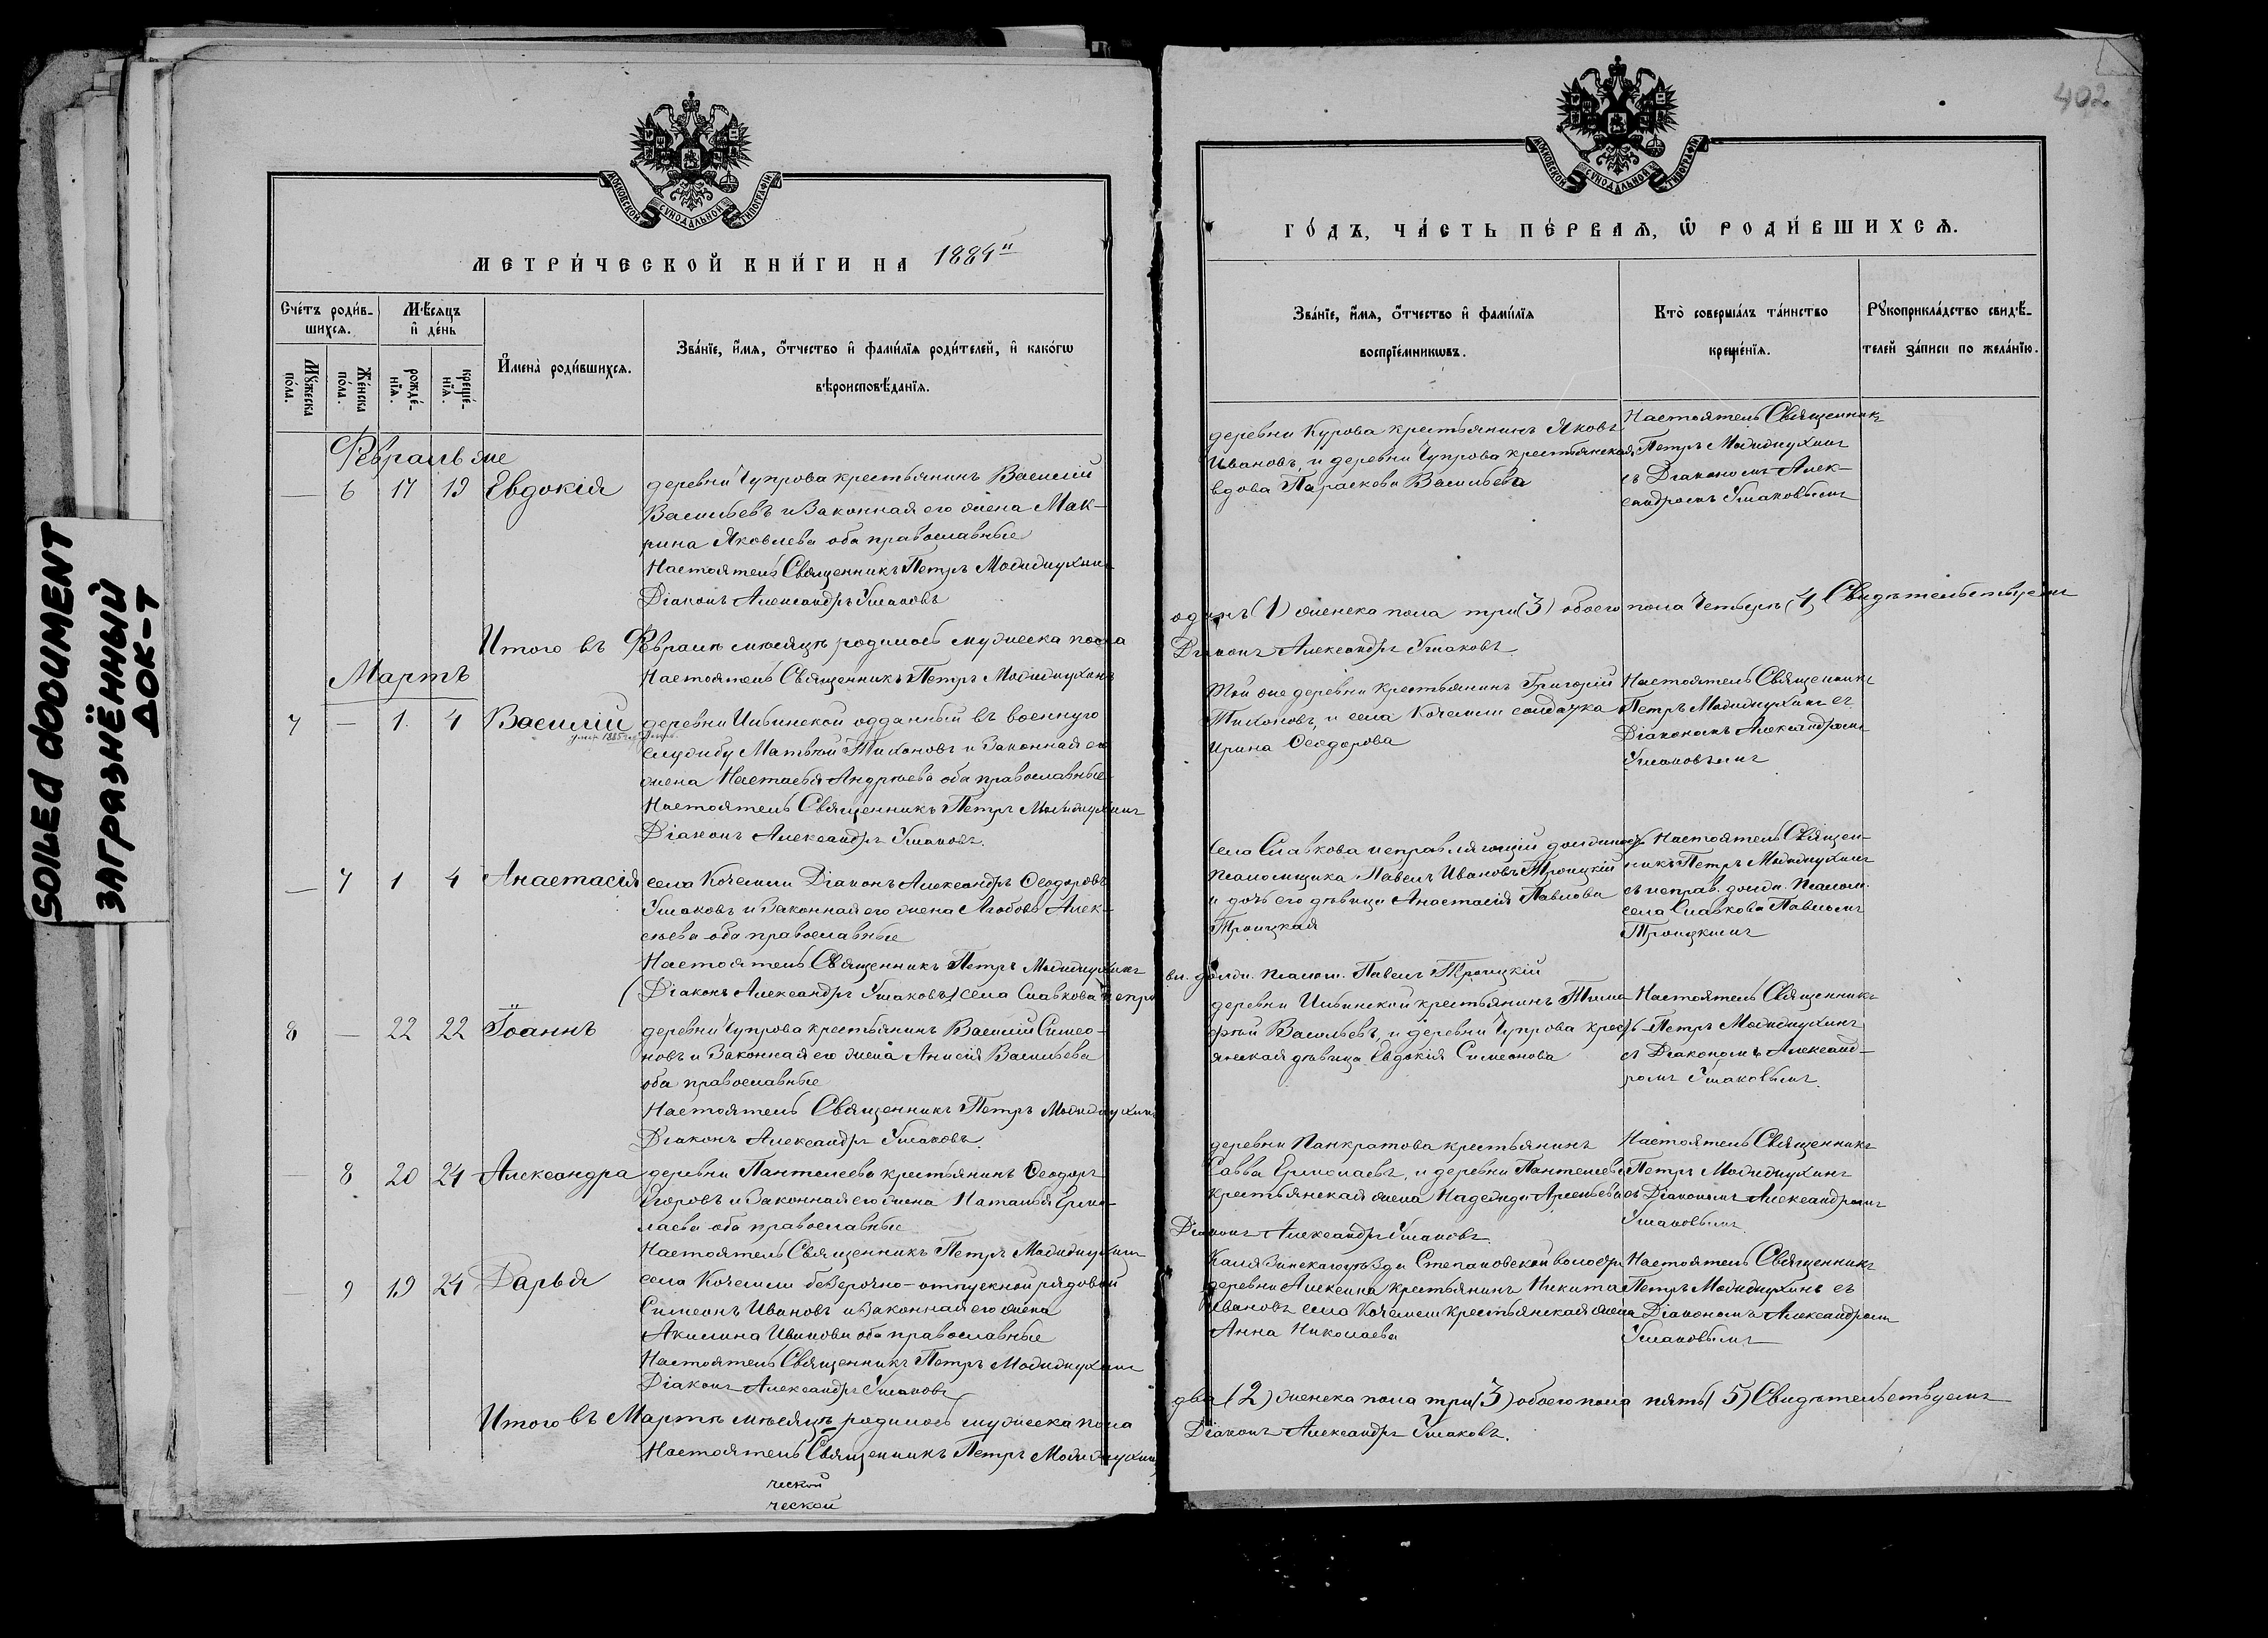 SOILEd dOCUMENT
ЗАГРЯЗНЁННЫЙ
ДОК-Т
МОСКОВСКОЙ СѴНОДАЛЬНОЙ ТИПОГРАФІИ
МЕТРИ́ЧЕСКОЙ КНИ́ГИ НА 1884й
Сче́тъ роди́в-
шихсѧ.
Мѣ́сѧцъ
и҆ де́нь
Мꙋ́жеска
по́ла.
Же́нска
по́ла.
рожде́-
нїѧ.
креще́-
нїѧ.
И҆мена̀ роди́вшихсѧ.
Зва́нїе, и҆́мѧ, ѻ҆́тчество и҆ фами́лїѧ роди́телей, и҆ како́гѡ
вѣроисповѣ́данїѧ.
Февраль же
— 6 17 19 Евдокія деревни Чупрова крестьянинъ Василій
Васильевъ и законная его жена Мак-
рина Яковлева оба православные
Настоятель Священникъ Петръ
Діаконъ Александръ Ушаковъ
Итого въ Февралѣ мѣсяцѣ родилось мужеска пола
Мартъ
Настоятель Священникъ Петръ
7 — 1 4 Василій деревни отданный въ военную
службу Матѳей Тихоновъ и законная его
жена Настасья Андреева оба православные
Настоятель Священникъ Петръ
Діаконъ Александръ Ушаковъ.
— 7 1 4 Анастасія села Кочемли Діаконъ Александръ Ѳеодоровъ
Ушаковъ и законная его жена Любовь Алек-
сѣева оба православные
Настоятель Священникъ Петръ
Діаконъ Александръ Ушаковъ села Славкова испра
8 — 22 22 Іоаннъ деревни Чупрова крестьянинъ Василій Симео-
новъ и законная его жена Анисія Васильева
оба православные
Настоятель Священникъ Петръ
Діаконъ Александръ Ушаковъ.
— 8 20 24 Александра деревни Пантелеева крестьянинъ Ѳеодоръ
Егоровъ и законная его жена Наталья Ермо-
лаева оба православные
Настоятель Священникъ Петръ
— 9 19 24 Дарья села Кочемли безсрочно-отпускной рядовой
Симеонъ Ивановъ и законная его жена
Акилина Иванова оба православные
Настоятель Священникъ Петръ
Діаконъ Александръ Ушаковъ
Итого въ Мартѣ мѣсяцѣ родилось мужеска пола
Настоятель Священникъ Петръ
ческой
ческой
402
МОСКОВСКОЙ СѴНОДАЛЬНОЙ ТИПОГРАФІИ
ГО́ДЪ, ЧА́СТЬ ПЕ́РВАѦ, Ѡ҆ РОДИ́ВШИХСѦ.
Зва́нїе, и҆́мѧ, ѻ҆́тчество и҆ фами́лїѧ
воспрїе́мникѡвъ.
Кто̀ соверша́лъ та́инство
креще́нїѧ.
Рꙋкоприкла́дство свидѣ́-
телей за́писи по жела́нїю.
деревни Курова крестьянинъ Яковъ
Ивановъ, и деревни Чупрова крестьянская
вдова Параскева Васильева
Настоятель Священникъ
Петръ
съ Діакономъ Алек-
сандромъ Ушаковымъ
одинъ (1) женска пола три (3) обоего пола четыре (4) Свидѣтельствуемъ
Діаконъ Александръ Ушаковъ.
Той же деревни крестьянинъ Григорій
Тихоновъ, и села Кочемли солдатка
Ирина Ѳеодорова
Настоятель Священникъ
Петръ съ
Діакономъ Александромъ
Ушаковымъ
села Славкова исправляющій должность
псаломщика Павелъ Ивановъ Троицкій
и дочь его дѣвица Анастасія Павлова
Троицкая
Настоятель Священ-
никъ Петръ
съ исправ. должн. псалом.
села Славкова Павломъ
Троицкимъ
вл. должн. псалом. Павелъ Троицкій
деревни крестьянинъ Тимо-
фей Васильевъ, и деревни Чупрова кресть-
янская дѣвица Евдокія Симеонова
Настоятель Священникъ
Петръ
съ Діакономъ Александ-
ромъ Ушаковымъ.
деревни Панкратова крестьянинъ
Савва Ермолаевъ, и деревни Пантелеева
крестьянская жена Надежда Арсеньева
Настоятель Священникъ
Петръ
съ Діакономъ Александромъ
Ушаковымъ
Діаконъ Александръ Ушаковъ.
Калязинскаго уѣзда Степановской волости
деревни крестьянинъ Никита
Ивановъ села Кочемли крестьянская жена
Анна Николаева
Настоятель Священникъ
Петръ съ
Діакономъ Александромъ
Ушаковымъ
два (2) женска пола три (3) обоего пола пять (5) Свидѣтельствуемъ
Діаконъ Александръ Ушаковъ.